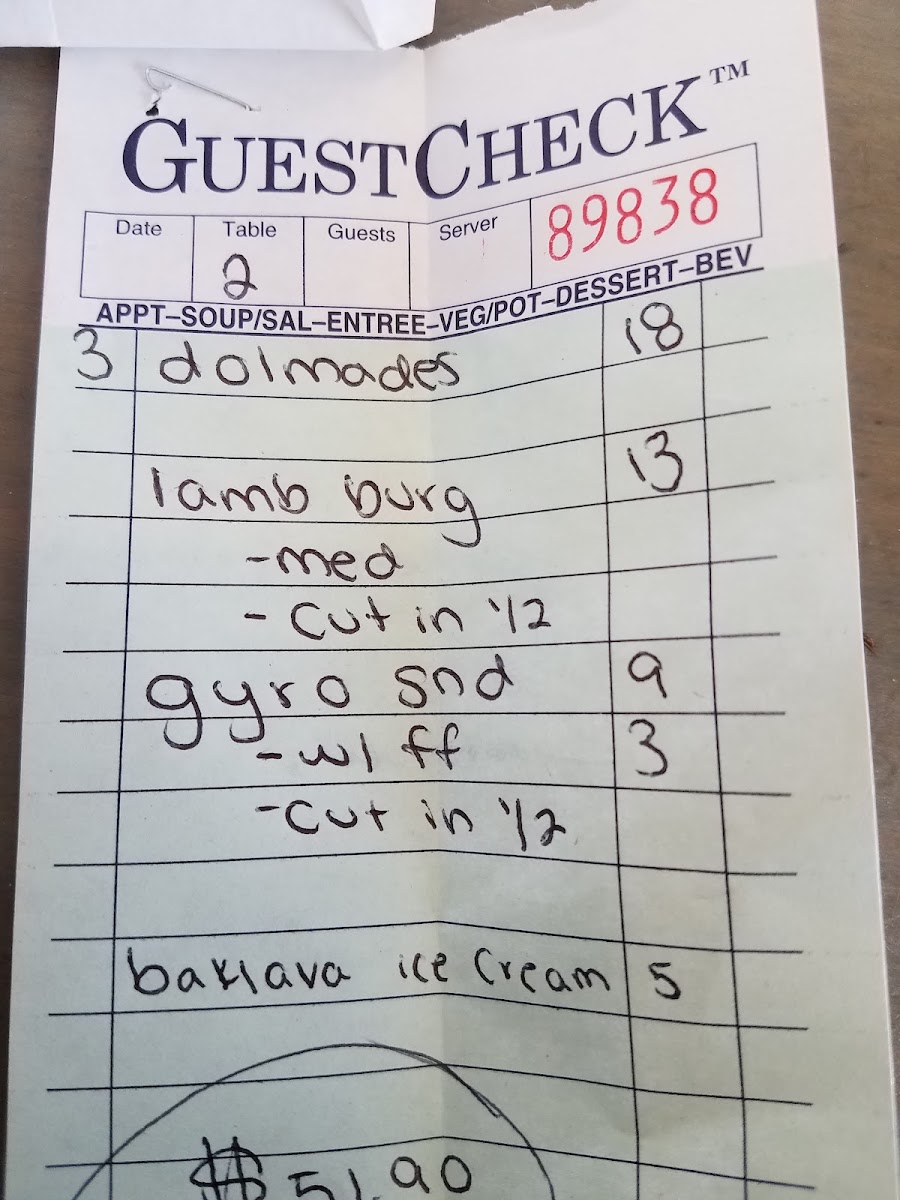 GUESTCHECK™
Date Table Guests Server 89838
2
APPT–SOUP/SAL–ENTREE–VEG/POT–DESSERT–BEV
3 dolmades 18
lamb burg 13
-med
- cut in 1/2
gyro snd 9
-w/ ff 3
-cut in 1/2
baklava ice cream 5
$51.90